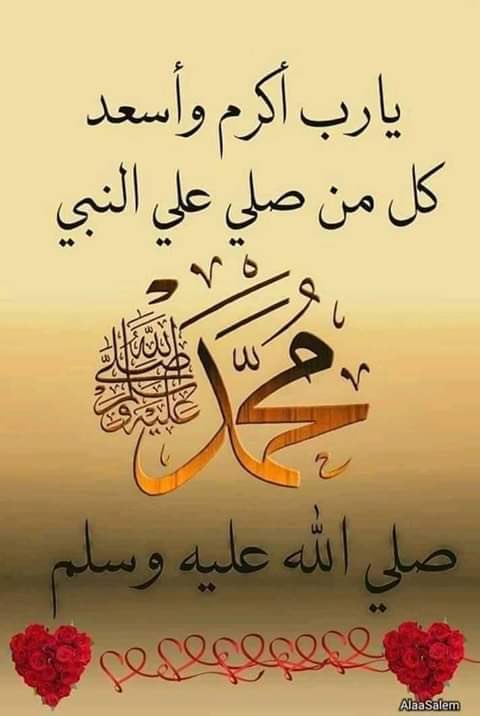 يارب أكرم وأسعد
كل من صلي علي النبي
مُحَمَّد
صلى الله عليه وسلم
صلي الله عليه وسلم
AlaaSalem